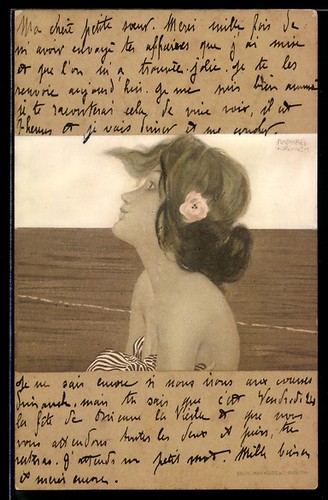 Ma chère petite sœur. Merci mille fois de
m'avoir envoyé tes affaires que j'ai mise
et que l'on m'a trouvée jolie. Je te les
renvoie aujourd'hui. Je me suis bien amusée
je te raconterai cela de vive voix, il est
7 heures et je vais dîner et me coucher.
RAPHAEL
KIRCHNER
Je ne sais encore si nous irons aux courses
Dimanche, mais tu sais que c'est Vendredi
la fête de la Vieille et que nous
vous attendons toutes les deux et puis, tu
J'attends un petit mot. Mille baisers
et merci encore.